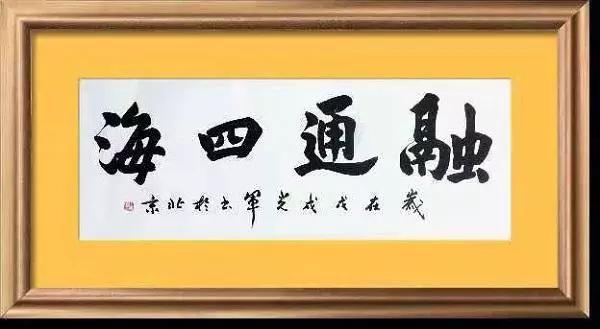 融通四海
歲在戊戌光軍书於北京